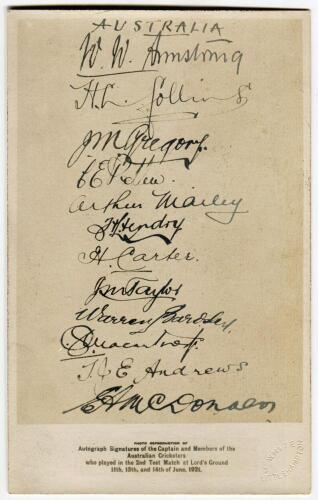 AUSTRALIA
W. W. Armstrong
H. L. Collins
J M Gregory.
C E Pellew.
Arthur Mailey
H L Hendry
H. Carter.
J M Taylor
Warren Bardsley.
C. G. Macartney.
T. J. E Andrews
E A McDonald
PHOTO REPRODUCTION OF
Autograph Signatures of the Captain and Members of the
Australian Cricketers
who played in the 2nd Test Match at Lord's Ground
11th, 13th, and 14th of June, 1921.